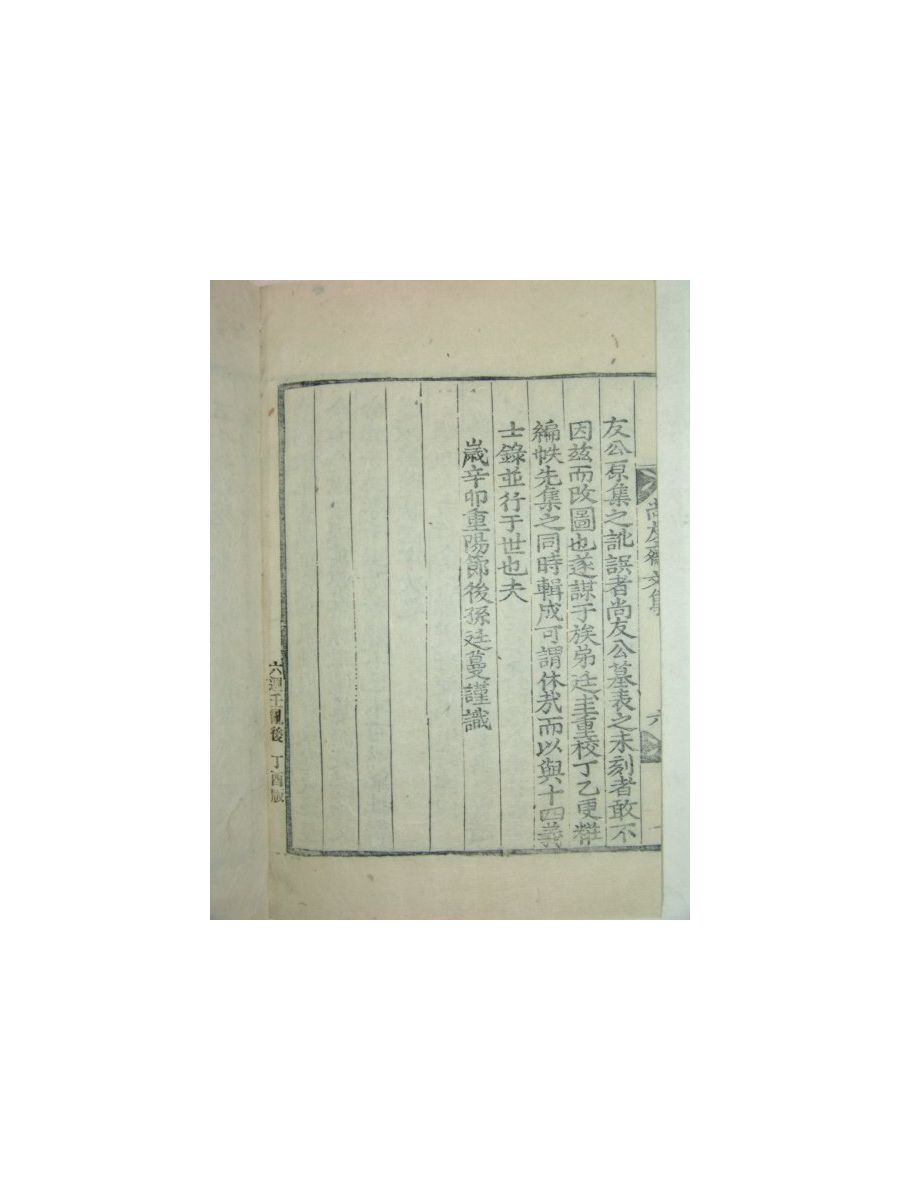 尚友齋文集
六
友公原集之訛誤者尚友公墓表之未刻者敢不
因茲而改圖也遂謀于族弟廷圭重校丁乙更粧
編帙先集之同時輯成可謂休哉而以與十四義
士錄並行于世也夫
歲辛卯重陽節後孫廷蔓謹識
六週壬亂後 丁酉版